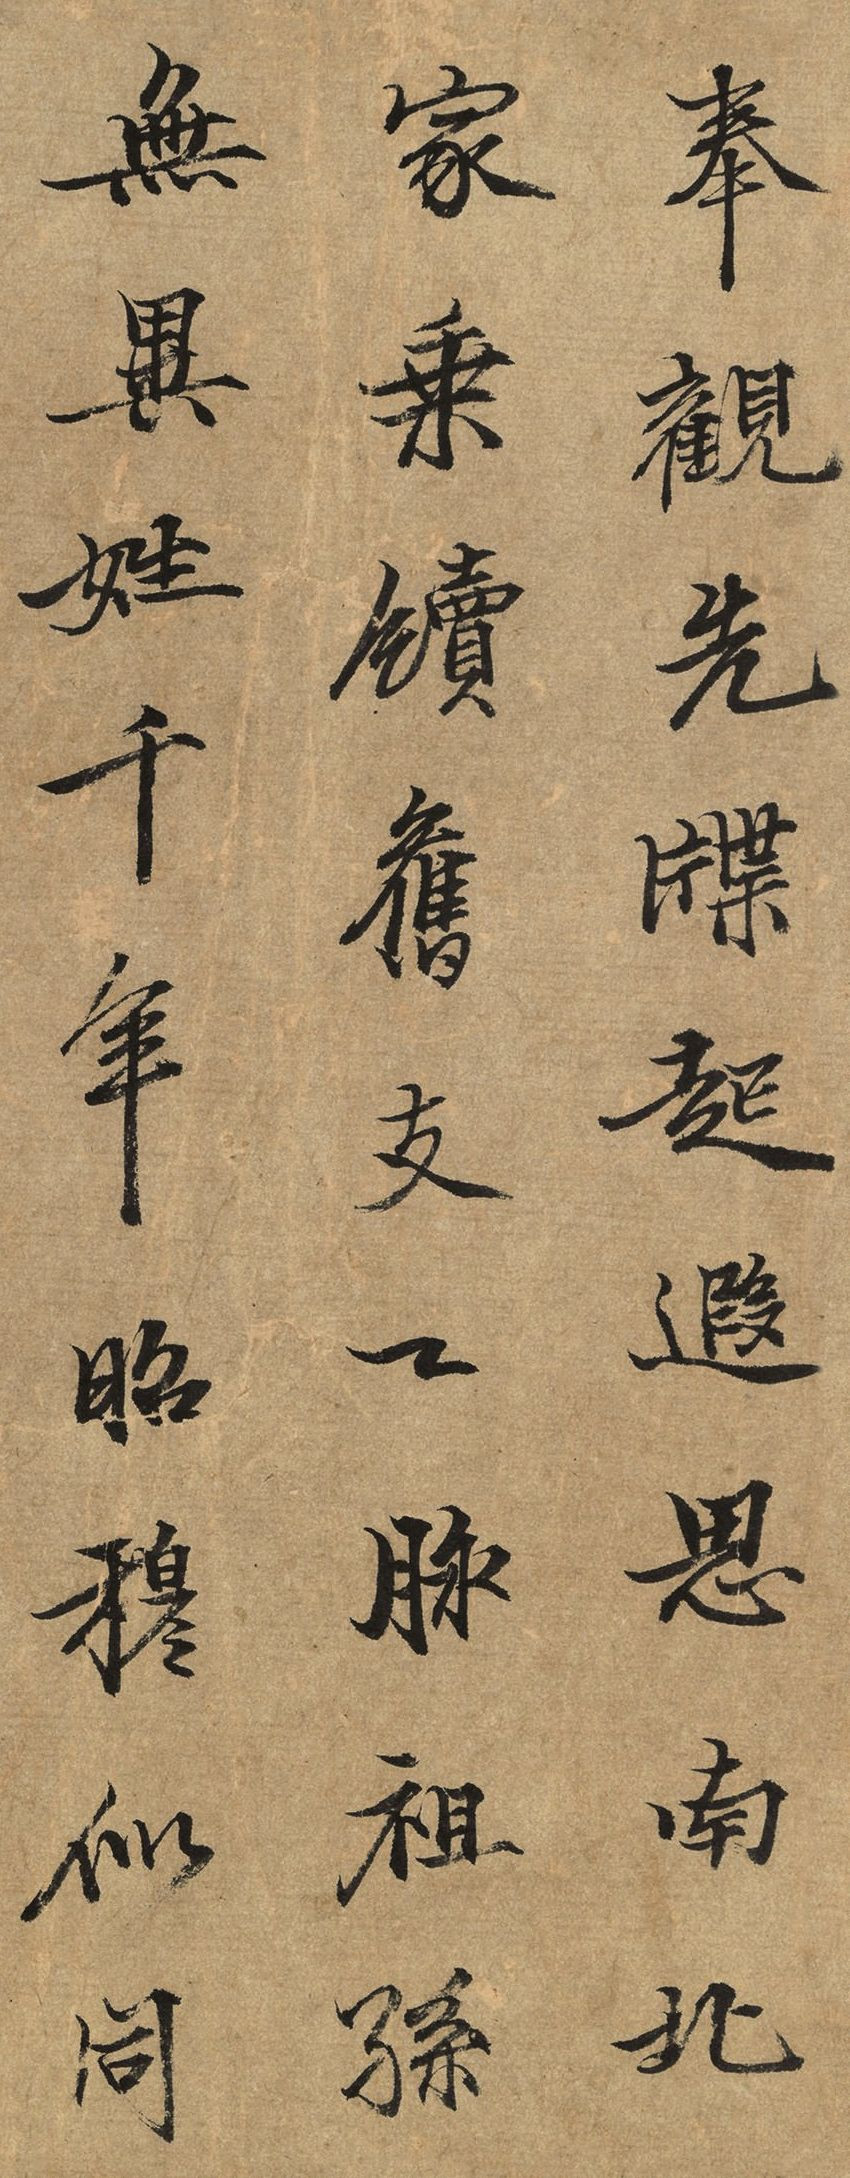 奉觀先牒起遐思南北
家乗續舊支一脉祖孫
無異姓千年昭穆似同